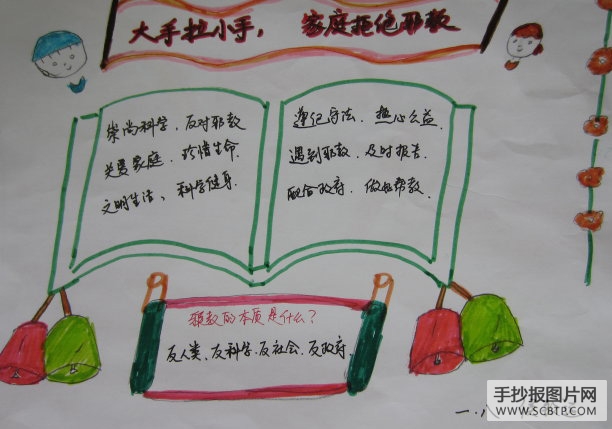 大手拉小手， 家庭拒绝邪教
崇尚科学、反对邪教
关爱家庭、珍惜生命
文明生活、科学健身
遵纪守法、热心公益
遇到邪教、及时报告
配合政府、做好帮教.
邪教的本质是什么？
反人类、反科学、反社会、反政府
一.八
手抄报图片网
WWW.SCBTP.COM